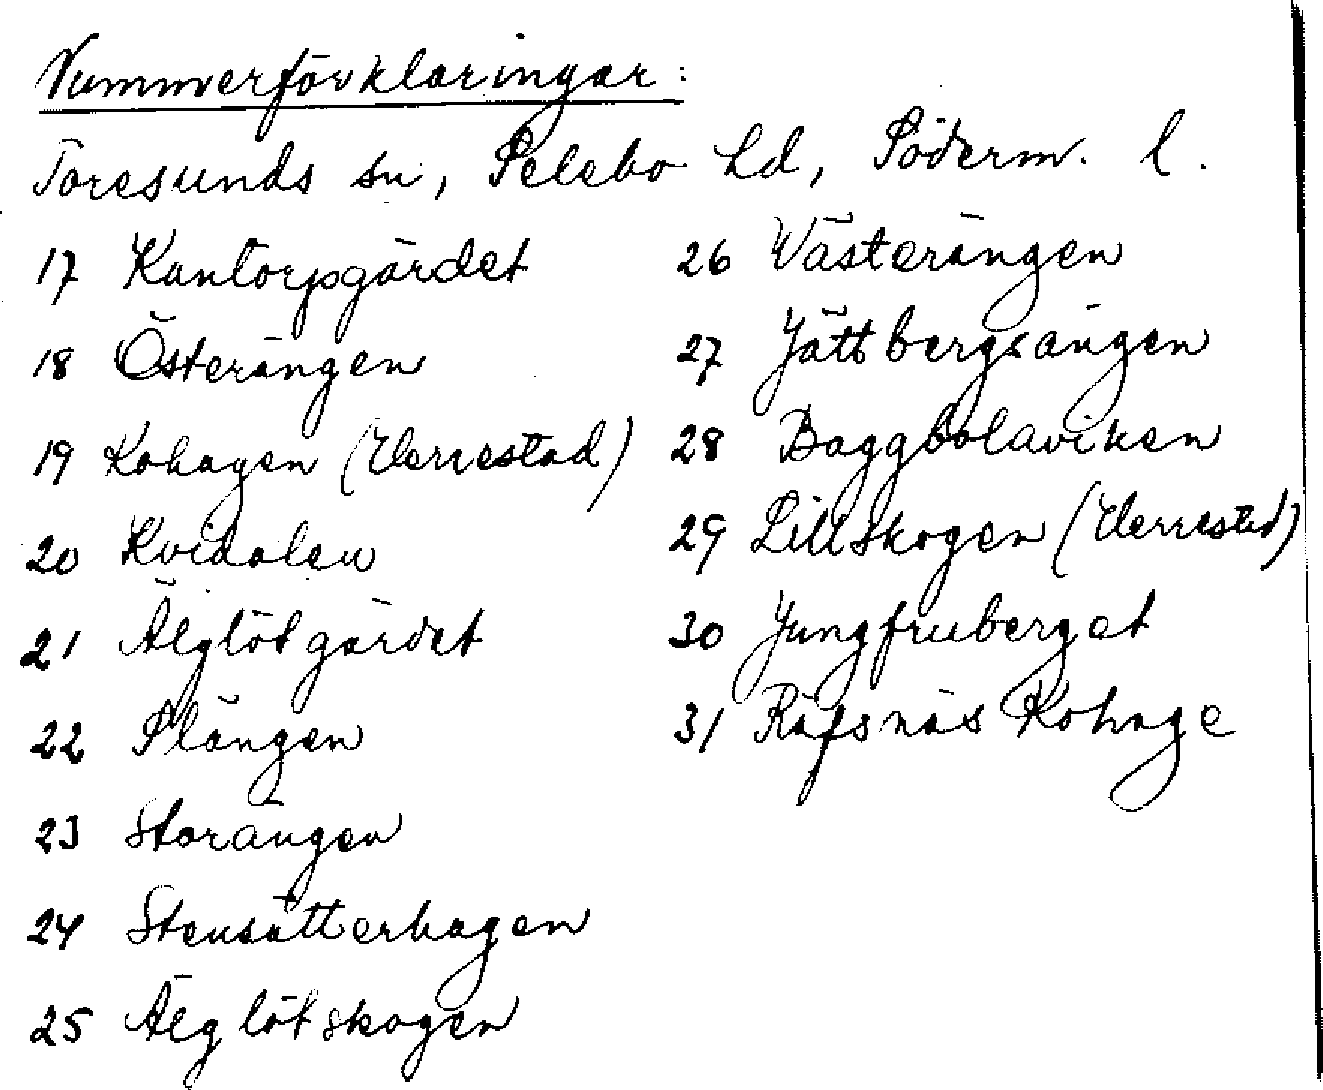 Nummerförklaringar:
Toresunds sn, Selebo hd, Söderm. l.
17 Kantorpsgärdet
18 Österängen
19 Kohagen (Herrestad)
20 Kvidalen
21 Älglötgärdet
22 Slängen
23 Storängen
24 Stensätterhagen
25 Älglötskogen
26 Västerängen
27 Jättbergsängen
28 Baggbolaviken
29 Lillskogen (Herrestad)
30 Jungfruberget
31 Räfsnäs Kohage